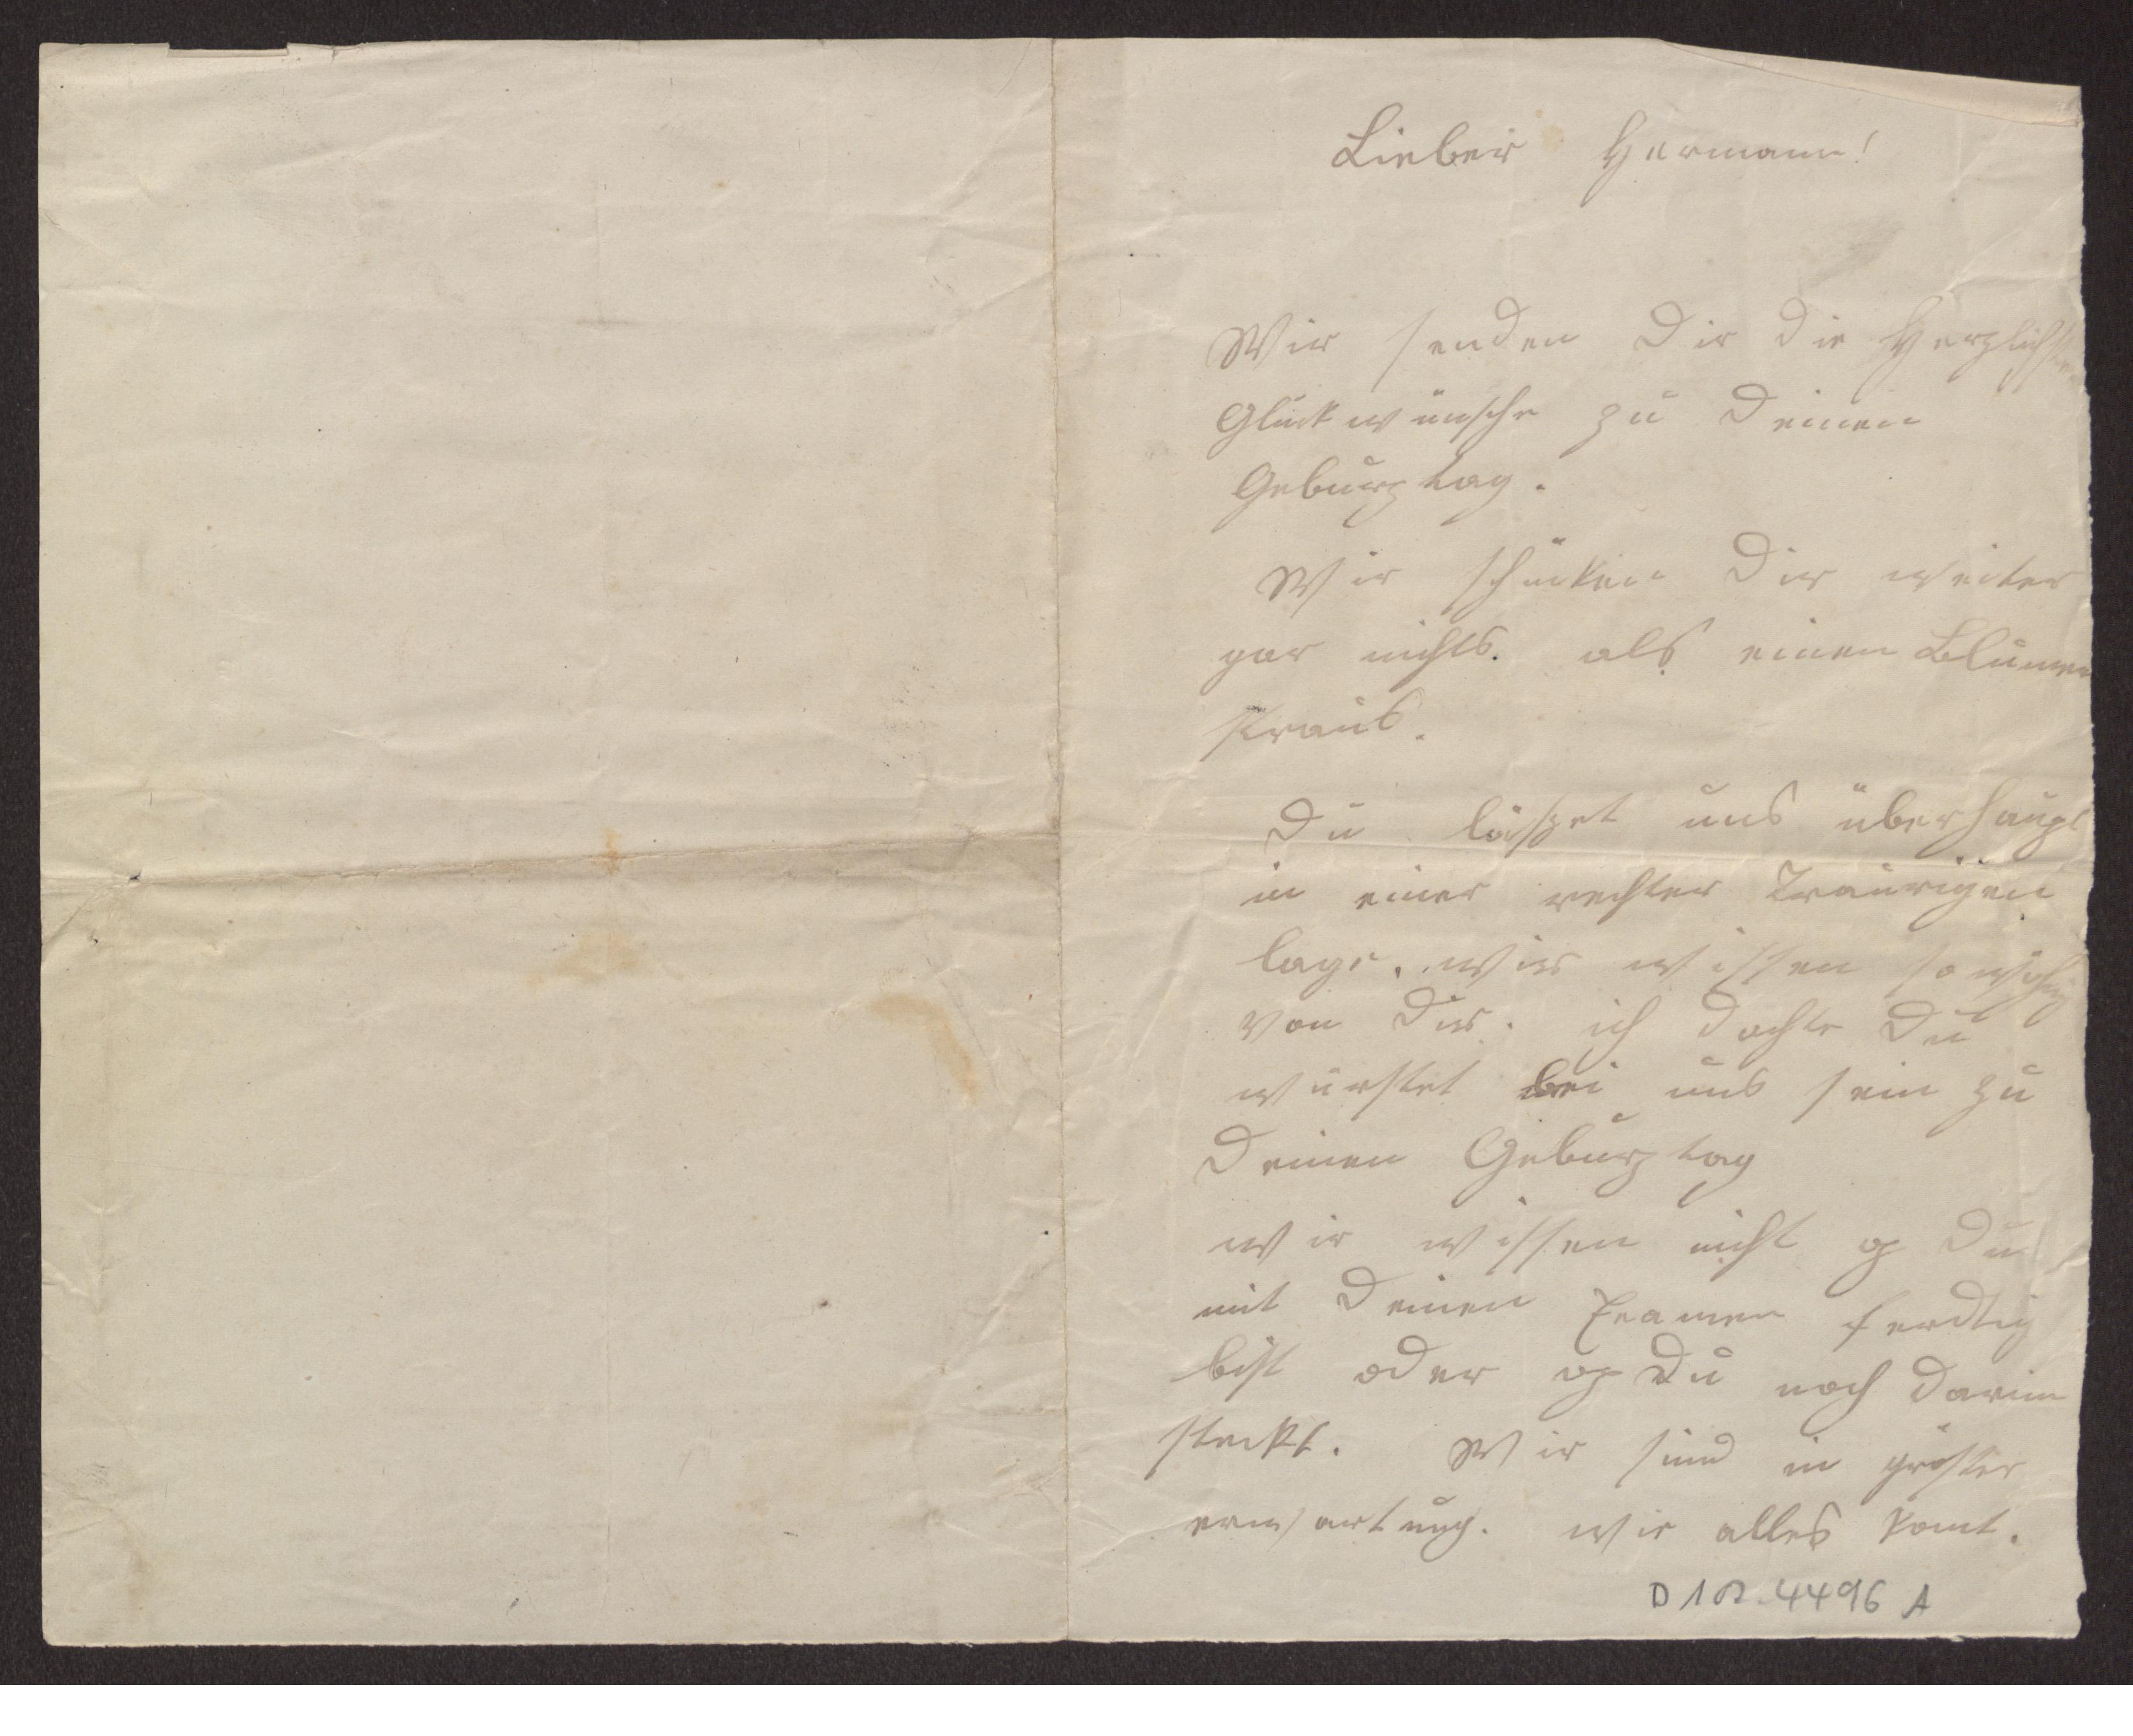 Lieber Hermann!
Wir senden Dir die Herzlichsten
Glückwünsche zu Deinen
Geburztag.
Wir schicken Dir weiter
gar nichts. als einen Blumen
straus.
Du läßet uns überhaupt
in einer rechter Traurigen
lage. wir wissen so
von Dir. ich dachte Du
würstet bei uns sein zu
Deinen Geburztag
wir wissen nicht op Du
mit Deinen Examen ferdtig
bist oder op Du noch darin
steckt. Wir sind in größter
erwartung. wie alles komt.
4496 A